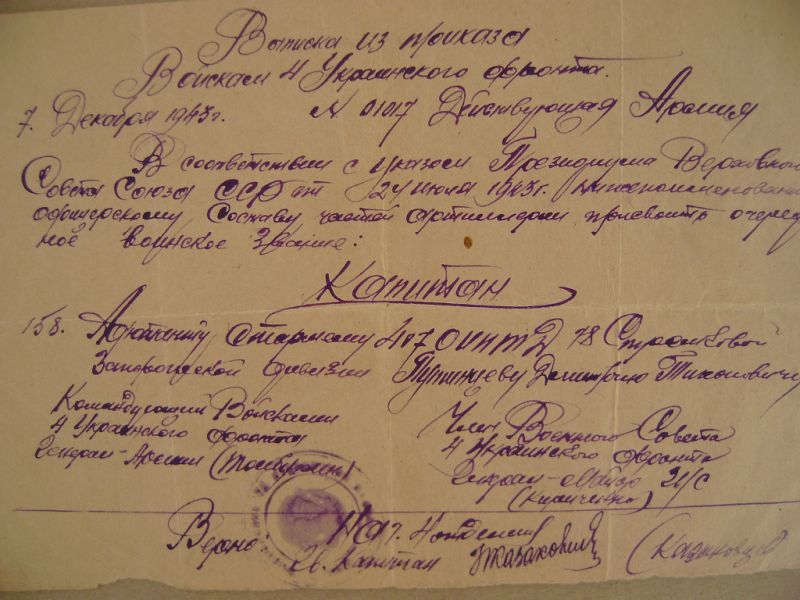 Выписка из приказа
Войскам 4 Украинского фронта.
7. Декабря 1943г. N 01017 Действующая Армия
В соответствии с указом Президиума Верховного
Совета Союза ССР от 24 июня 1943г. нижепоименован
офицерскому составу частей артиллерии присвоить очеред
ное воинское звание:
Капитан
158. Адютанту старшему 78 Стрелковой
Запорожской дивизии Дмитрию Тихоновичу
Командующий Войсками
4 Украинского фронта
Генерал-Армии (Толбухин)
Член Военного Совета
4 Украинского фронта
Генерал-Майор
Верно: Нач. 4 отделения
Капитан